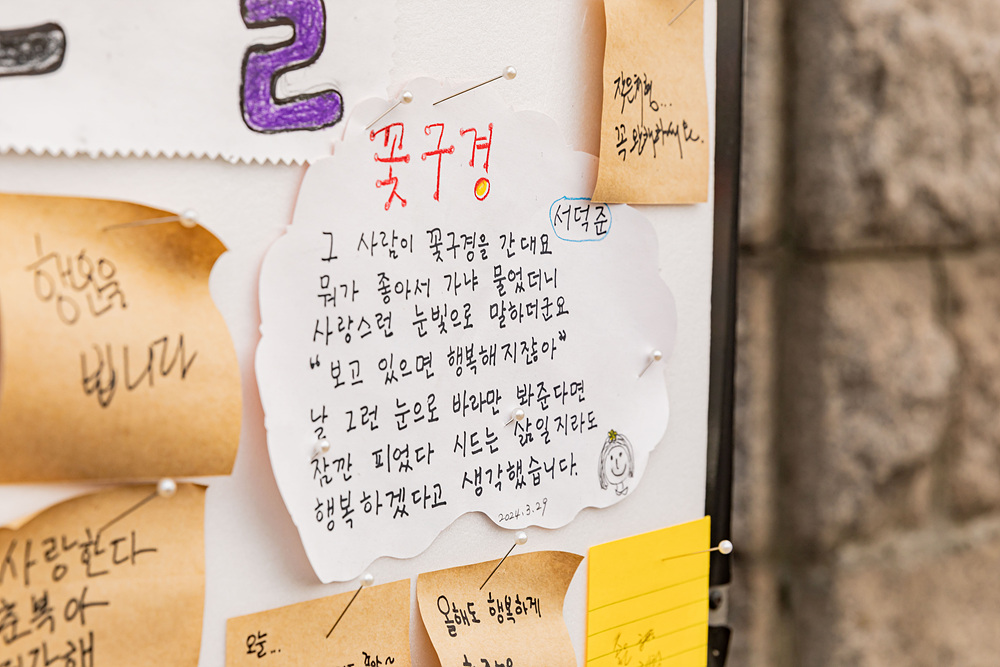 꽃구경
서덕준
그 사람이 꽃구경을 간대요
뭐가 좋아서 가냐 물었더니
사랑스런 눈빛으로 말하더군요
"보고 있으면 행복해지잖아"
날 그런 눈으로 바라만 봐준다면
잠깐 피었다 시드는 삶일지라도
행복하겠다고 생각했습니다.
2024.3.29
행운을
빕니다
사랑한다
춘복아
오늘...
올해도 행복하게